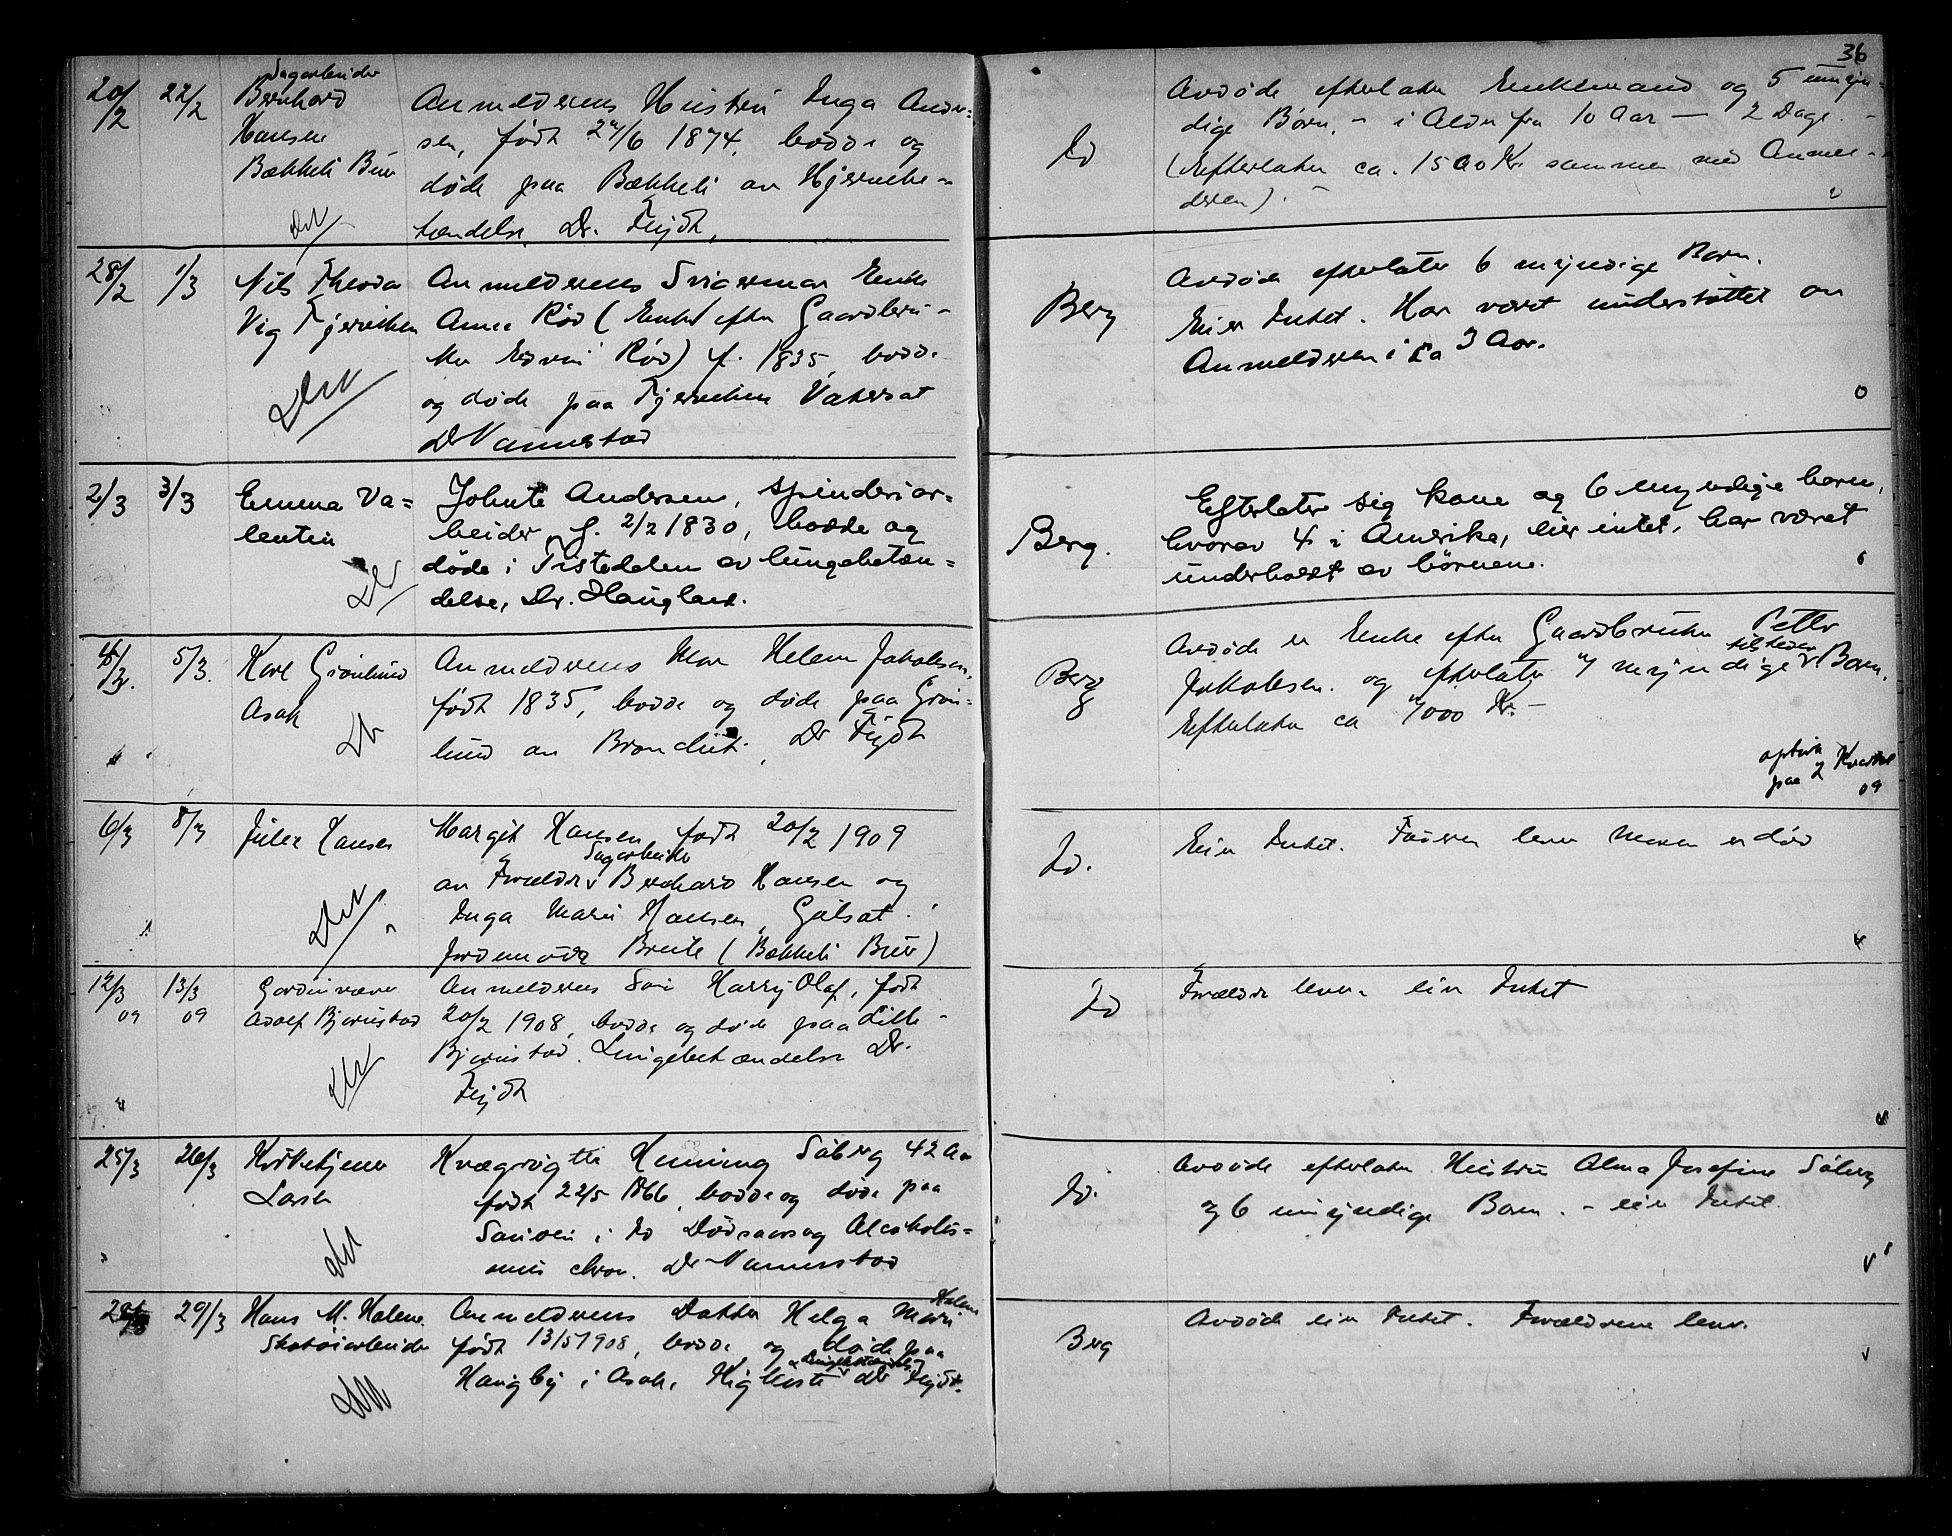 36
20/2 22/2 Sagarbeider
Bernhard
Hansen
Bækkeli Bur
Anmelderens Hustru Inga Ander-
sen, født 24/6 1874, bodde og
døde paa Bækkeli av Hjernebe-
tændelse, Dr. Fejdt,
Id
Avdøde efterlater Enkemand og 5 umyn-
dige Børn, - i Alder fra 10 Aar — 2 Dage. -
(Efterlater ca. 1500 Kr sammen med Anmel-
deren). -
28/2 1/3 Nils Theodor
Vig Fjereviken
Anmelderens Svigermor Enke
Anne Rød (Enke efter Gaardbru-
ker Edvin Rød) f. 1835, bodde
og døde paa Fjereviken Vatersot
Dr Vannestad
Berg
Avdøde efterlater 6 myndige Børn.
Eier Intet. Har været understøttet av
Anmelderen i ca 3 Aar.
2/3 3/3 Emma Va=
lentin
Johnte Andersen, spinderiar=
beider, f. 2/2 1830, bodde og
døde i Tistedalen av lungebetæn=
delse, Dr. Haugland.
Berg.
Efterlater sig kone og 6 myndige børn,
hvorav 4 i Amerika, eier intet, har været
underholdt av börnene.
5/3. Karl Grønlund
Asak
Anmelderens Mor Helene Jakobsen,
født 1835, bodde og døde paa Grøn-
lund av Bronchit. Dr Fejdt
Berg
Avdøde er Enke efter Gaardbruker Petter
Jakobsen. og efterlater 7 myndige tilstede Børn.
Efterlater ca 7000 Kr. -
paa 2 Kvartal
09
6/3 8/3 Julie Hansen
Margit Hansen født 20/2 1909
av Forældre Sagarbeider Bernhard Hansen og
Inga Marie Hansen, Gulsot.
Jordemoder Brente (Bækkeli Bur)
Id.
Eier Intet. Faderen lever Moren er død
12/3 09 13/3 09 Gardinvæver
Adolf Bjørnstad
Anmelderens Søn Harry Olaf, født
20/2 1908, bodde og døde paa Lille-
Bjørnstad. Lungebetændelse Dr.
Fejdt
Id
Forældre lever. eier Intet
25/3 26/3 Kirketjener
Larsen
Kvægrøgter Henning Søberg 42 Aar
født 22/5 1866, bodde og døde paa
Sanden i Id Dødsaarsag Alcoholis=
mus chron. Dr Vannestad
Id.
Avdøde efterlater Hustru Alma Josefine Søberg
og 6 umyndige Børn. - eier Intet.
29/3 Hans M. Halene.
Skotøiarbeider
Anmelderens Datter Helga Marie Halene
født 13/5 1908, bodde og døde paa
Haugby i Asak, Kighoste & Lungebetændelse Dr Fejdt.
Berg
Avdøde eier Intet. Forældrene lever.